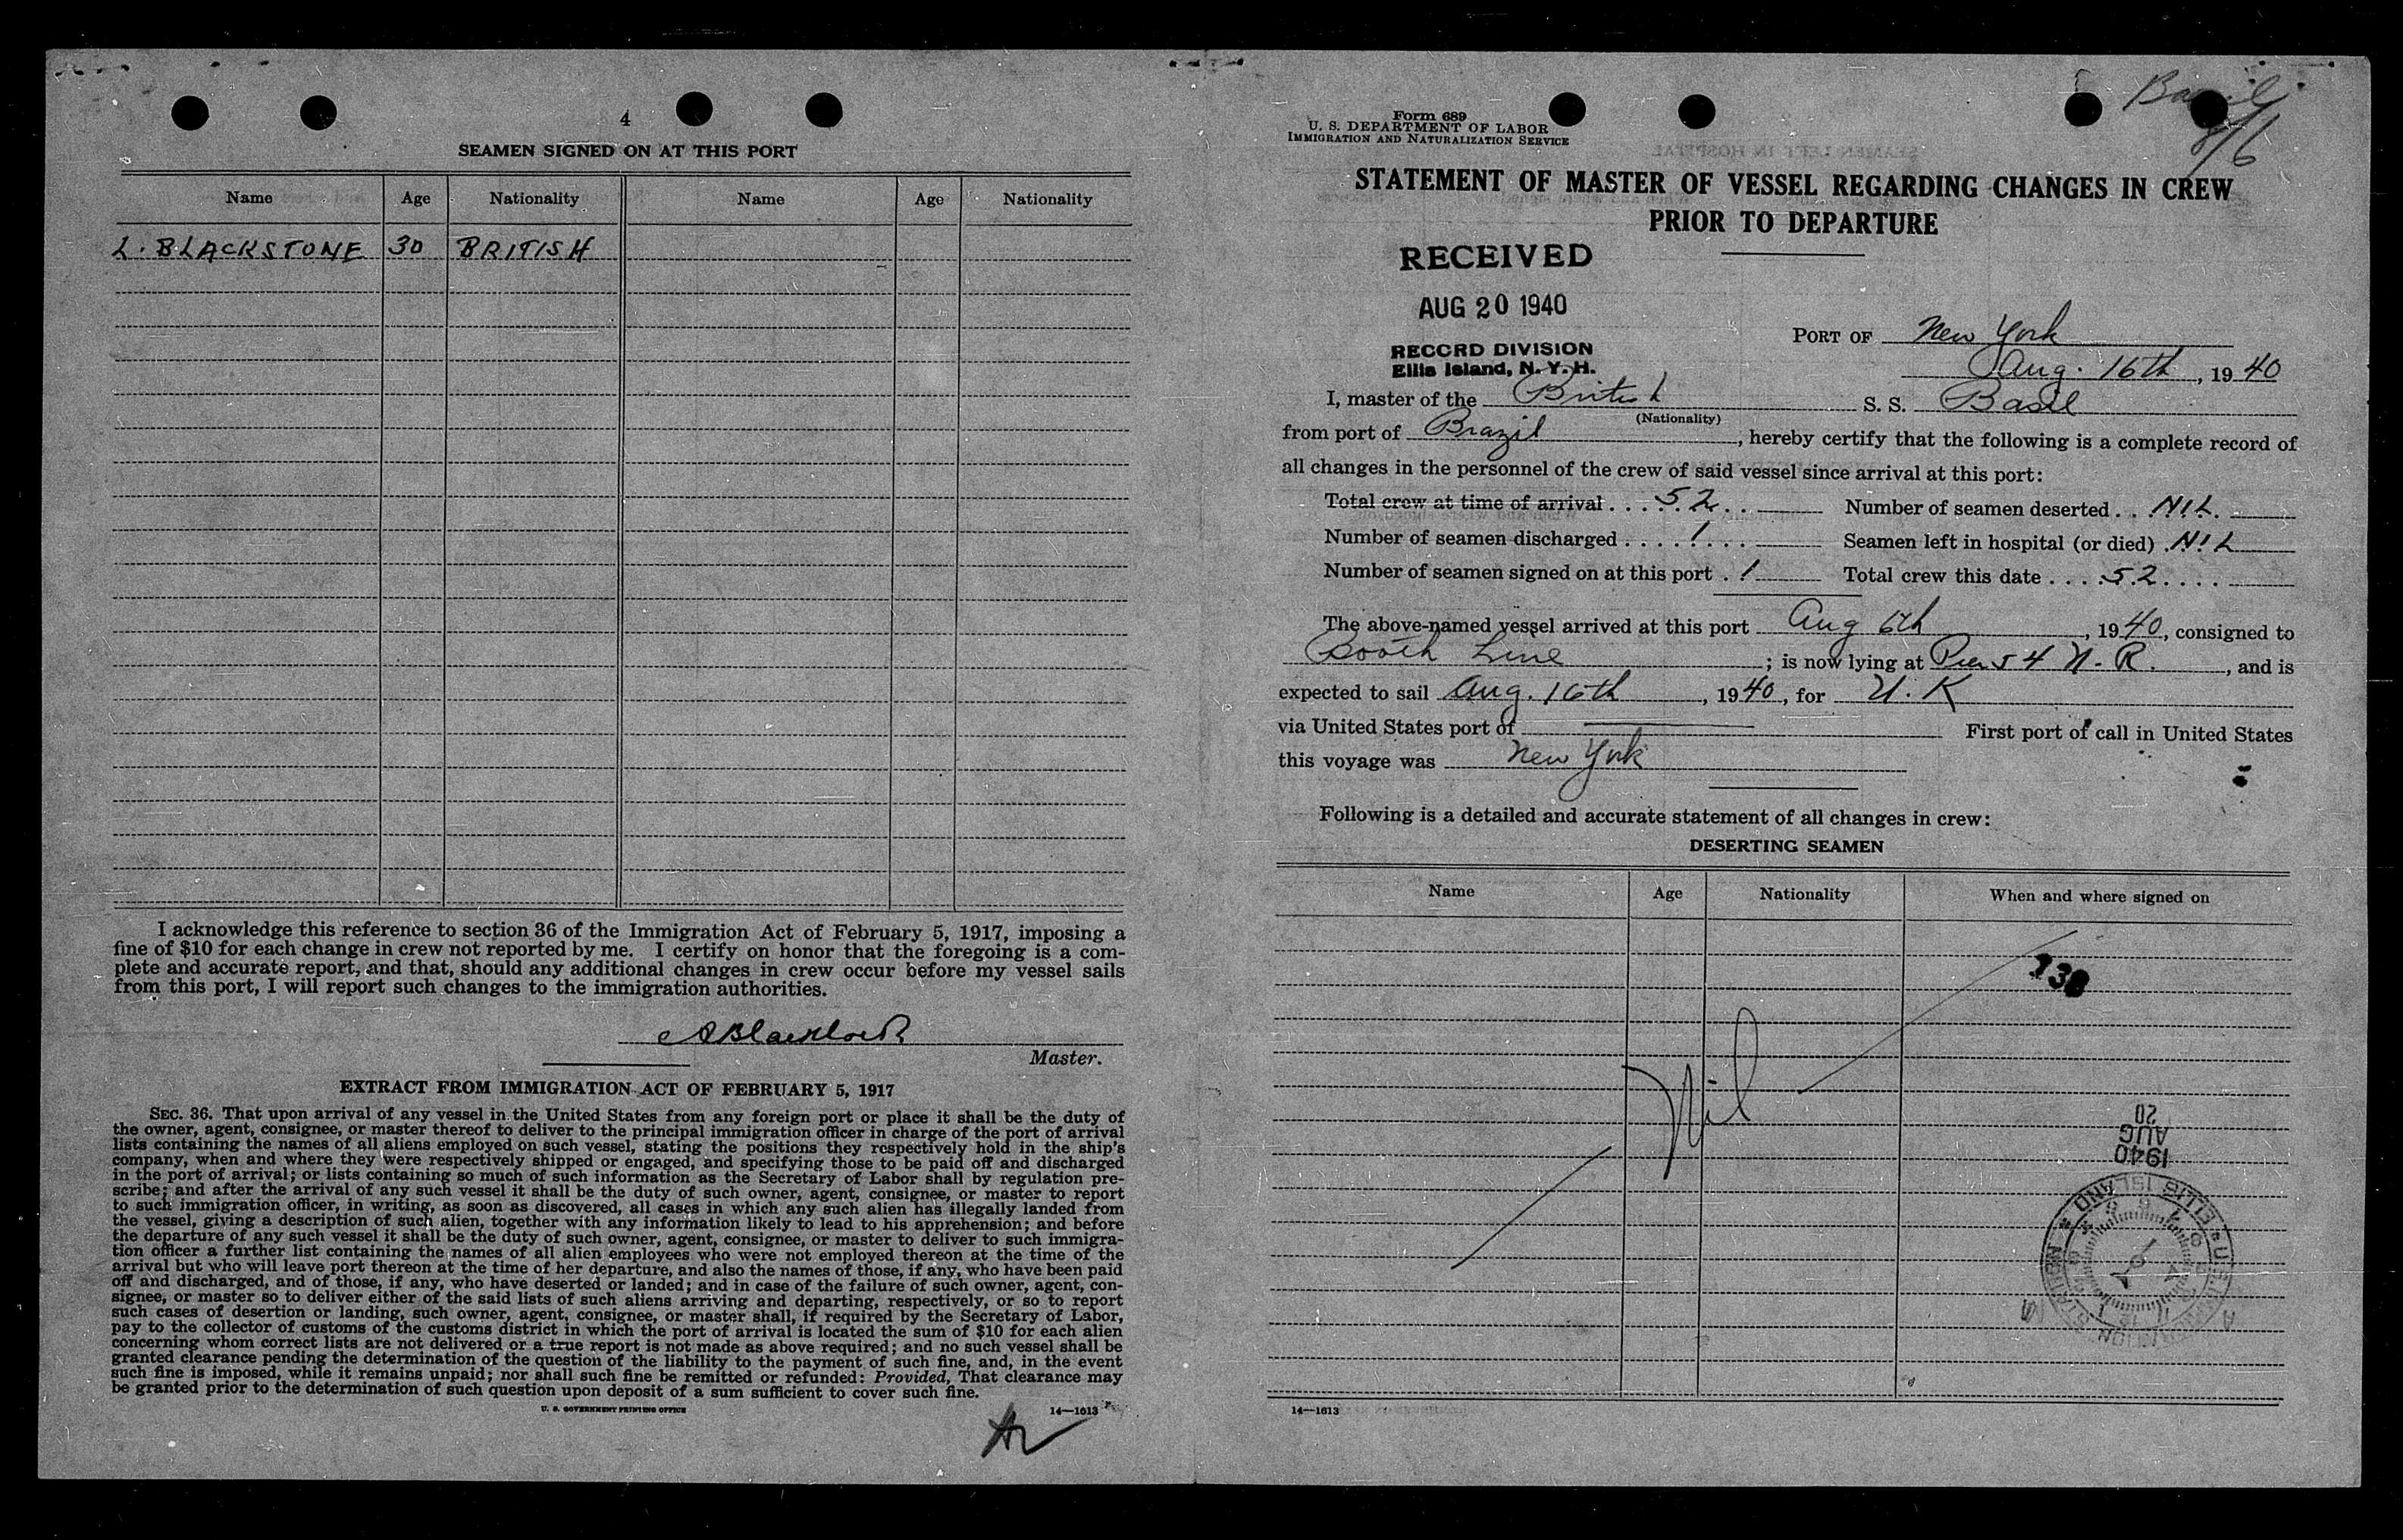 4
SEAMEN SIGNED ON AT THIS PORT
Name Age Nationality Name Age Nationality
L. BLACKSTONE 30 BRITISH
I acknowledge this reference to section 36 of the Immigration Act of February 5, 1917, imposing a
fine of $10 for each change in crew not reported by me. I certify on honor that the foregoing is a com-
plete and accurate report, and that, should any additional changes in crew occur before my vessel sails
from this port, I will report such changes to the immigration authorities.
Master.
EXTRACT FROM IMMIGRATION ACT OF FEBRUARY 5, 1917
SEC. 36. That upon arrival of any vessel in the United States from any foreign port or place it shall be the duty of
the owner, agent, consignee, or master thereof to deliver to the principal immigration officer in charge of the port of arrival
lists containing the names of all aliens employed on such vessel, stating the positions they respectively hold in the ship's
company, when and where they were respectively shipped or engaged, and specifying those to be paid off and discharged
in the port of arrival; or lists containing so much of such information as the Secretary of Labor shall by regulation pre-
scribe; and after the arrival of any such vessel it shall be the duty of such owner, agent, consignee, or master to report
to such immigration officer, in writing, as soon as discovered, all cases in which any such alien has illegally landed from
the vessel, giving a description of such alien, together with any information likely to lead to his apprehension; and before
the departure of any such vessel it shall be the duty of such owner, agent, consignee, or master to deliver to such immigra-
tion officer a further list containing the names of all alien employees who were not employed thereon at the time of the
arrival but who will leave port thereon at the time of her departure, and also the names of those, if any, who have been paid
off and discharged, and of those, if any, who have deserted or landed; and in case of the failure of such owner, agent, con-
signee, or master so to deliver either of the said lists of such aliens arriving and departing, respectively, or so to report
such cases of desertion or landing, such owner, agent, consignee, or master shall, if required by the Secretary of Labor,
pay to the collector of customs of the customs district in which the port of arrival is located the sum of $10 for each alien
concerning whom correct lists are not delivered or a true report is not made as above required; and no such vessel shall be
granted clearance pending the determination of the question of the liability to the payment of such fine, and, in the event
such fine is imposed, while it remains unpaid; nor shall such fine be remitted or refunded: Provided, That clearance may
be granted prior to the determination of such question upon deposit of a sum sufficient to cover such fine.
U. S. GOVERNMENT PRINTING OFFICE 14—1613
Basil
8/6
Form 689
U. S. DEPARTMENT OF LABOR
IMMIGRATION AND NATURALIZATION SERVICE
STATEMENT OF MASTER OF VESSEL REGARDING CHANGES IN CREW
PRIOR TO DEPARTURE
RECEIVED
AUG 20 1940
RECORD DIVISION
Ellis Island, N. Y. H.
PORT OF New York
Aug. 16th, 1940
I, master of the British S. S. Basil
(Nationality)
from port of Brazil, hereby certify that the following is a complete record of
all changes in the personnel of the crew of said vessel since arrival at this port:
Total crew at time of arrival .... 52 .. Number of seamen deserted .. NIL.
Number of seamen discharged .... 1 ... Seamen left in hospital (or died) . NIL
Number of seamen signed on at this port . 1 Total crew this date .... 52 ....
The above-named vessel arrived at this port Aug 6th, 1940, consigned to
Booth Line; is now lying at Pier 54 N. R., and is
expected to sail Aug. 16th, 1940, for U. K
via United States port of First port of call in United States
this voyage was New York
Following is a detailed and accurate statement of all changes in crew:
DESERTING SEAMEN
Name Age Nationality When and where signed on
Nil
20
AUG
1940
ELLIS ISLAND
14—1613